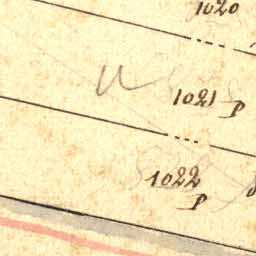 1020
1021 P
1022
P